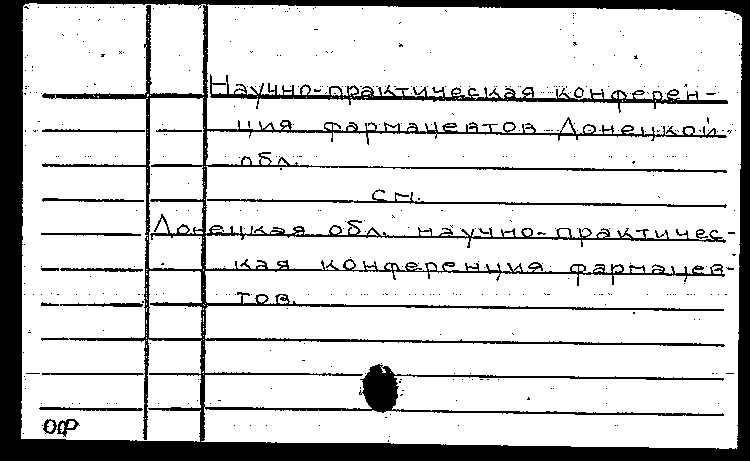 Научно-практическая конферен-
ция фармацевтов Донецкой
обл.
см.
Донецкая обл. научно-практичес-
кая конференция фармацев-
тов.
ОФ